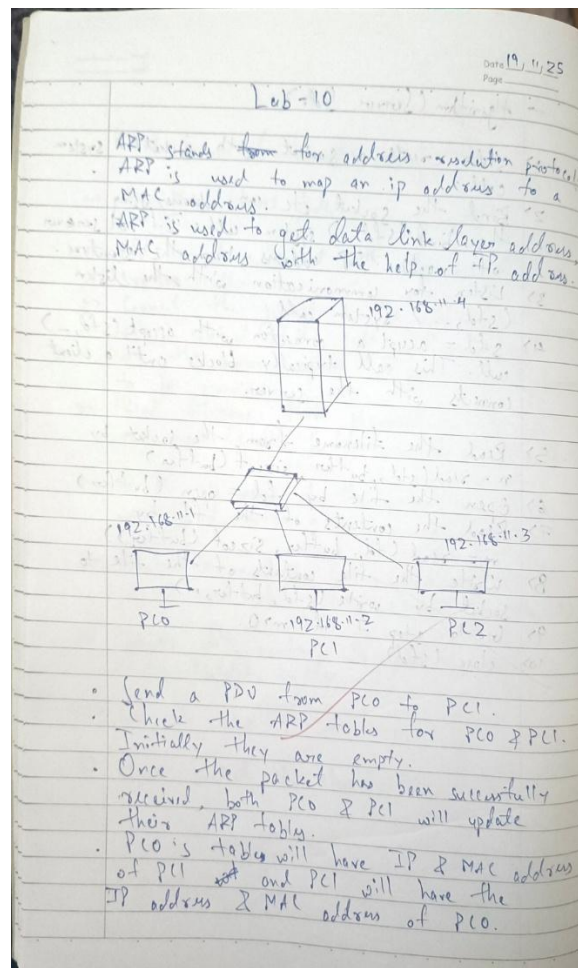 Date 19, 11, 25
Page
Lab - 10
ARP stands from for address resolution protocol
ARP is used to map an ip address to a
MAC address.
ARP is used to get data link layer address,
MAC address with the help of IP address.
192.168.11.4
192.168.11.1
192.168.11.3
PC0
192.168.11.2
PC2
PC1
• Send a PDU from PC0 to PC1.
• Check the ARP tables for PC0 & PC1.
Initially they are empty.
• Once the packet has been successfully
received, both PC0 & PC1 will update
their ARP tables.
• PC0's tables will have IP & MAC address
of PC1 and PC1 will have the
IP address & MAC address of PC0.